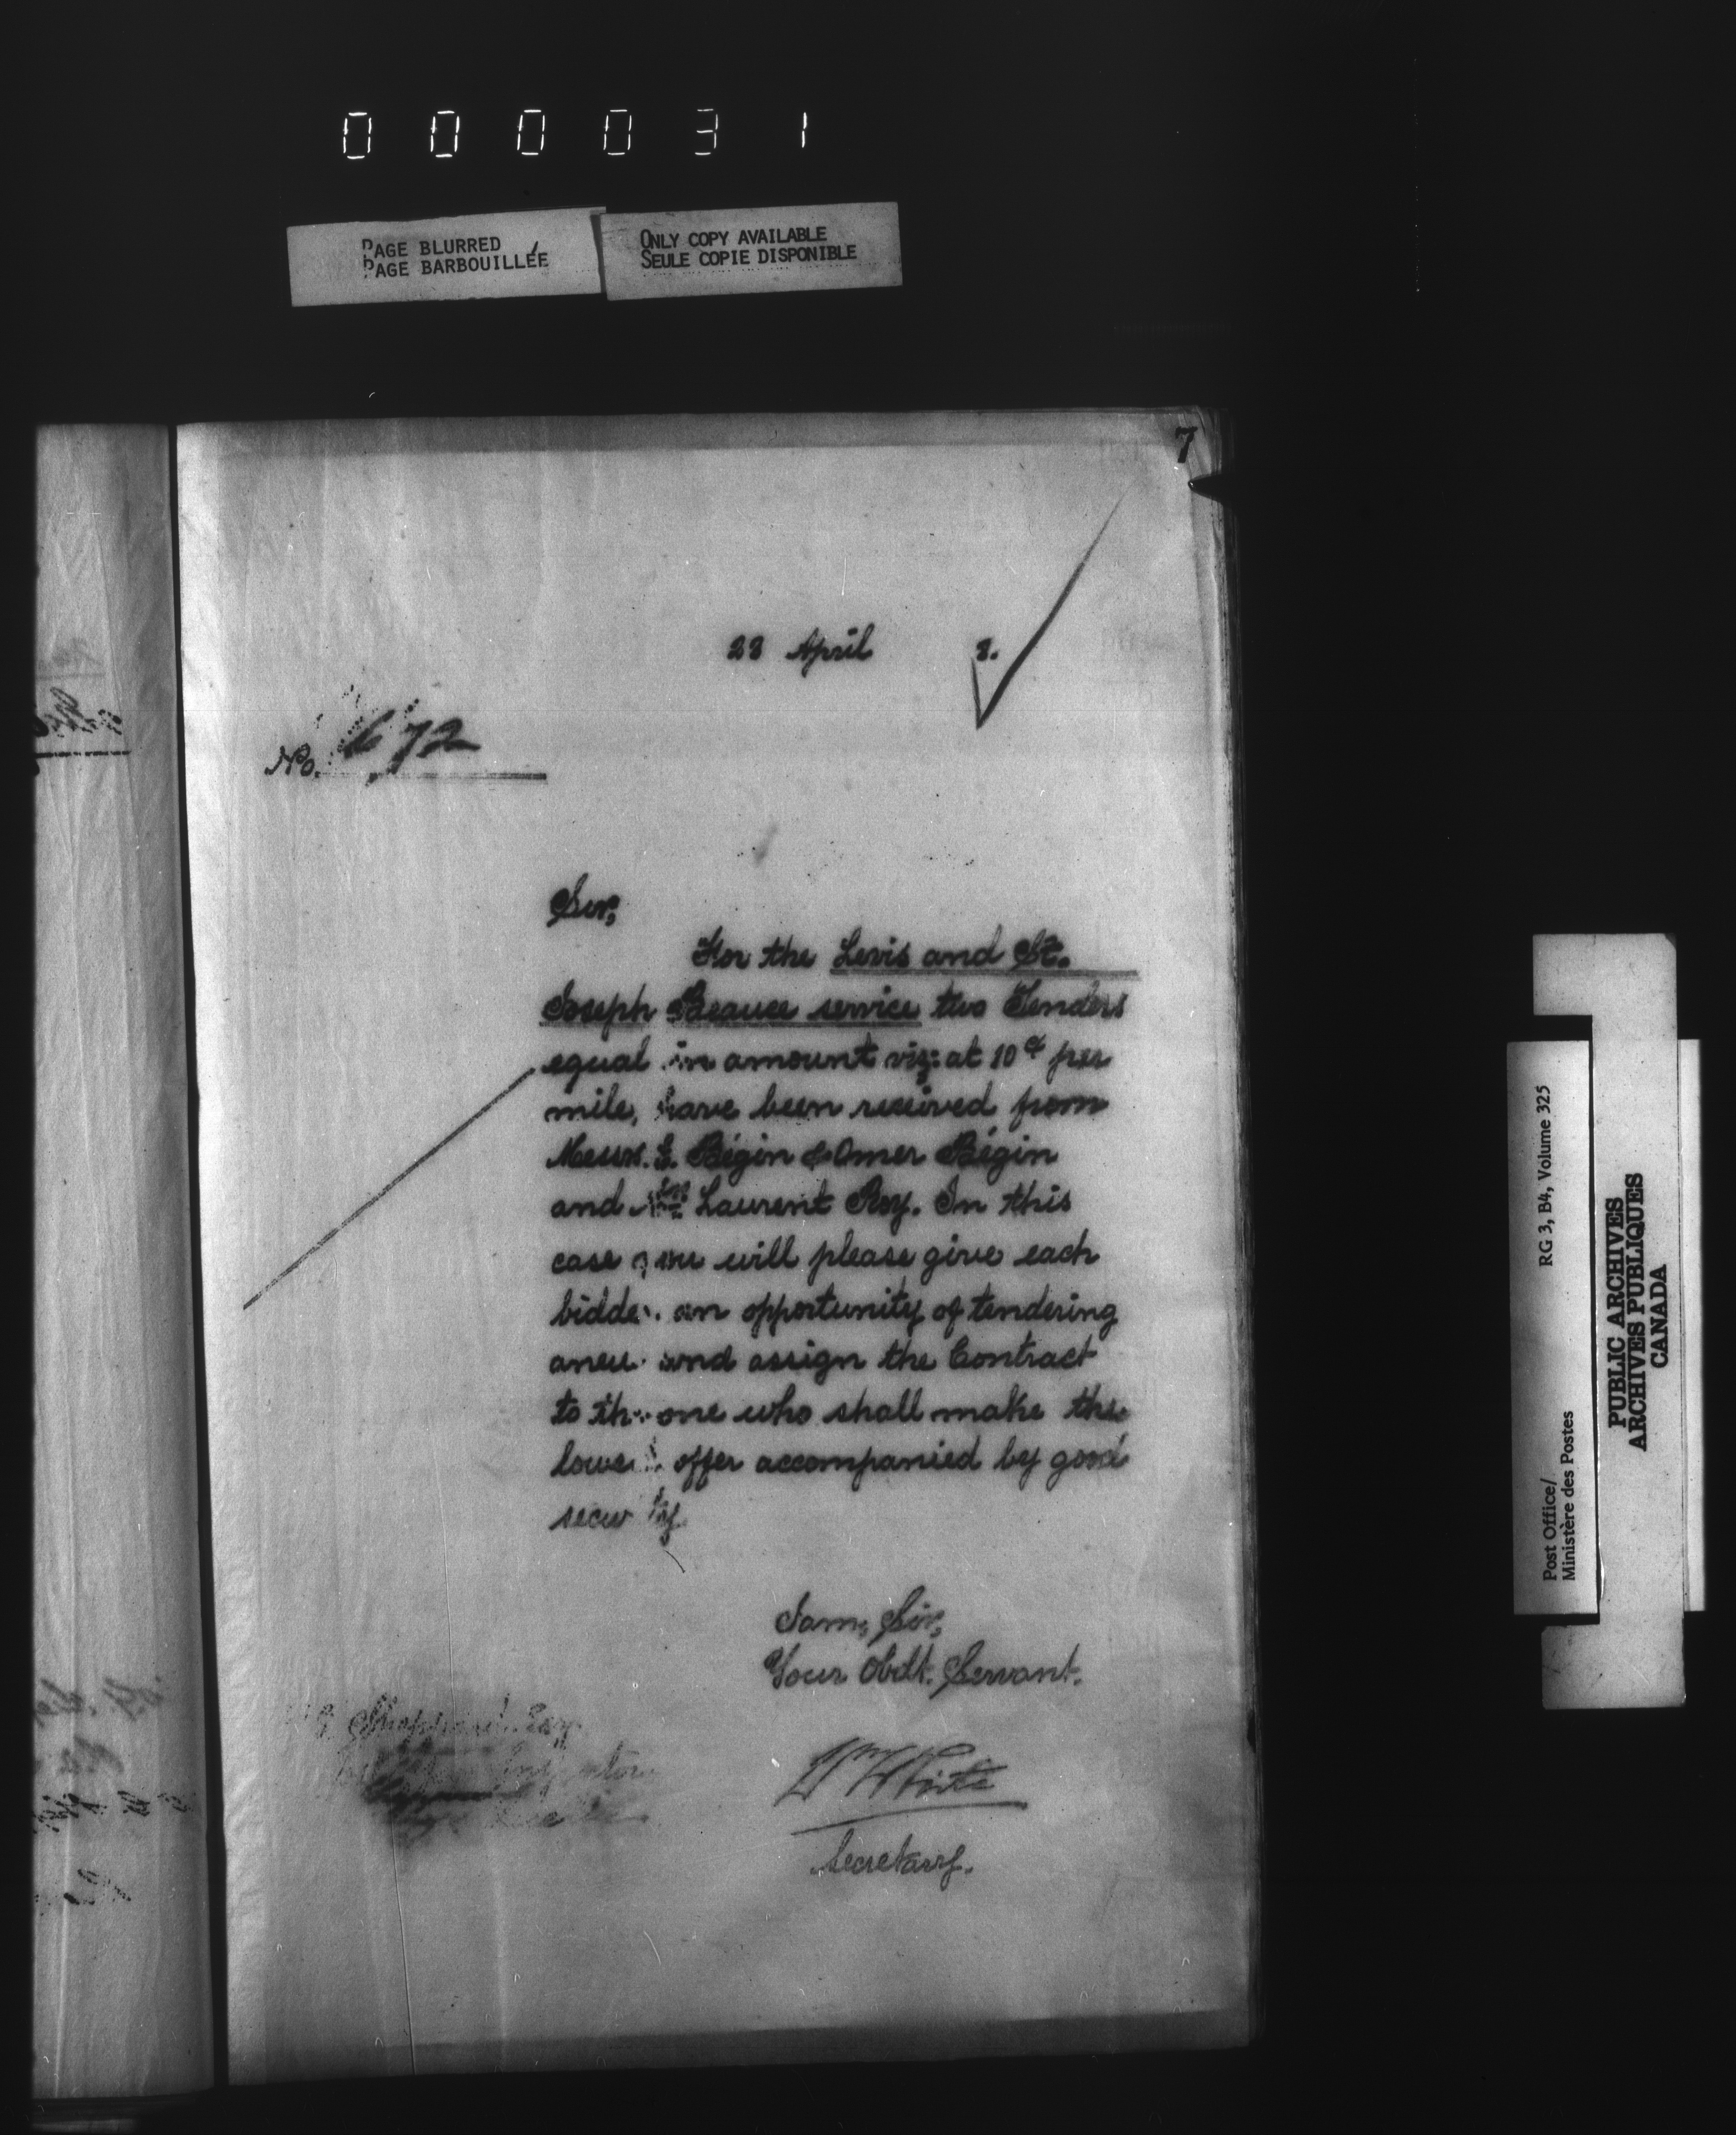 000031
PAGE BLURRED
PAGE BARBOUILLÉE
ONLY COPY AVAILABLE
SEULE COPIE DISPONIBLE
7
April 8.
No. 672
Sir,
For the Levis and St.
Joseph Beauce service two Tenders
equal in amount viz: at 10 per
mile, have been received from
Messrs. Bégin & Omer Bégin
and Laurent Roy. In this
case you will please give each
bidder an opportunity of tendering
anew and assign the Contract
to the one who shall make the
lowest offer accompanied by good
security.
I am, Sir,
Your Obdt. Servant.
Wm White
Secretary.
Post Office/
Ministère des Postes
RG 3, B4, Volume 325
PUBLIC ARCHIVES
ARCHIVES PUBLIQUES
CANADA